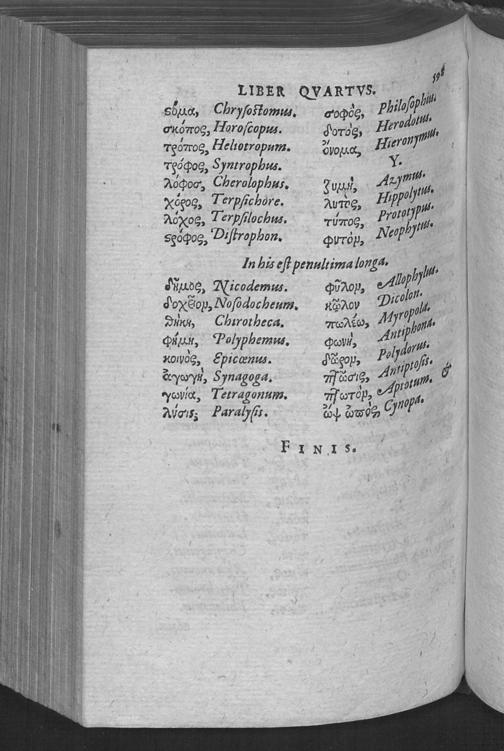 LIBER QVARTVS.
ϛόμα, Chrysostomus. σοφὸς, Philosophus.
σκόπος, Horoscopus. δοτὸς, Herodotus.
τρόπος, Heliotropum. ὄνομα, Hieronymus.
τρόφος, Syntrophus. Y.
λόφοσ, Cherolophus. ζυμὴ, Azymus.
χόρος, Terpsichore. λυτὸς, Hippolytus.
λόχος, Terpsilochus. τύπος, Prototypus.
ϛρόφος, Distrophon. φυτὸμ, Neophytus.
In his est penultima longa.
δῆμος, Nicodemus. φῦλομ, Allophylus.
δοχεῖομ, Nosodocheum. κῶλον Dicolon.
θήκη, Chirotheca. πωλέω, Myropola.
φήμη, Polyphemus. φωνὴ, Antiphona.
κοινὸς, Epicœnus. δῶρομ, Polydorus.
ἀγωγὴ, Synagoga. πτῶσις, Antiptosis.
γωνία, Tetragonum. πτωτόμ, Aptotum. &
λύσις, Paralysis. ὤψ ὠπὸς, Cynopa.
FINIS.